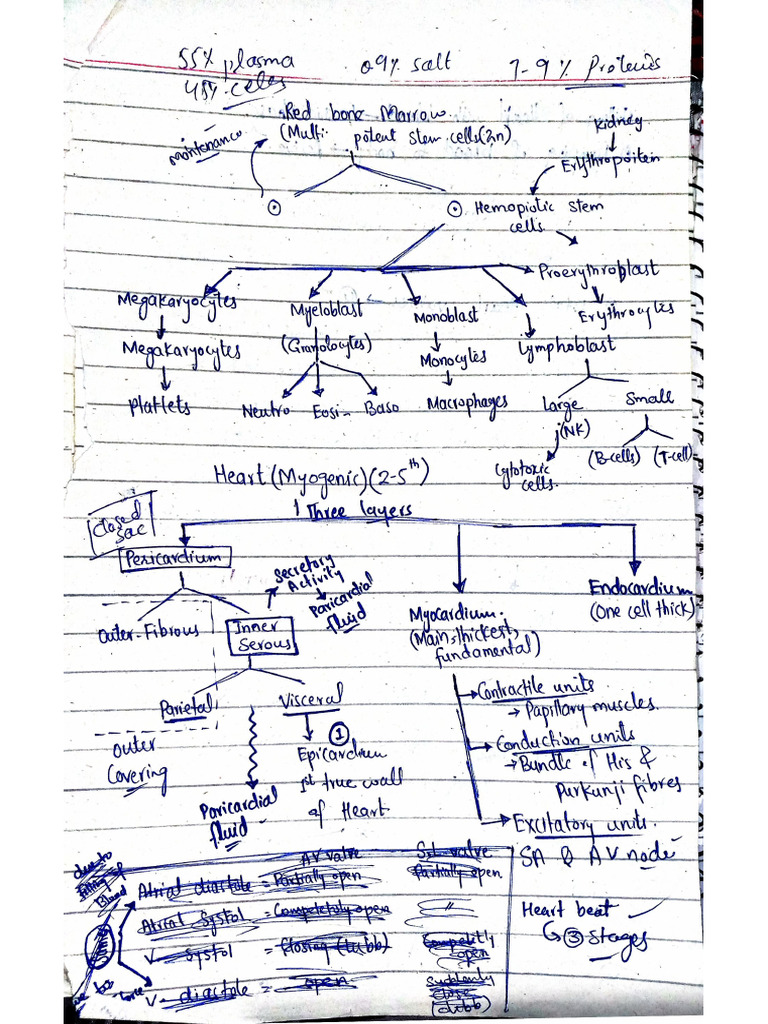 55% plasma 0.9% salt 7-9% Proteins
45% cells
Red bone Marrow
(Multi potent stem cells(2n)
maintenance
Kidney
Erythropoiten
Hemopiotic stem
cells
Proerythroblast
Megakaryocytes Myeloblast Monoblast Erythrocytes
Megakaryocytes (Granolocytes) Monocytes Lymphoblast
Platlets Neutro Eosi- Baso Macrophages Large Small
(NK)
Cytotoxic
cells.
(B-cells) (T-cell)
Heart (Myogenic) (2-5th)
Three layers
Closed
sac
Pericardium
Secretory
Activity
Paricardial
fluid
Outer-Fibrous Inner
Serous
Myocardium.
(Main, thickest,
fundamental)
Endocardium
(One cell thick)
Parietal Visceral
Outer
Covering
Paricardial
fluid
1
Epicardium
1st true wall
of Heart
Contractile units
Papillary muscles.
Conduction units
Bundle of His &
Purkunji fibres
Excitatory units.
SA & AV node
Heart beat
3 stages
due to
filling of
Blood
AV valve valve
Atrial diastole = Partially open Partially open
Atrial Systol = Completely open "
V- Systol = Closing (lubb) open
V- diastole = open Suddenly
close
(dubb)